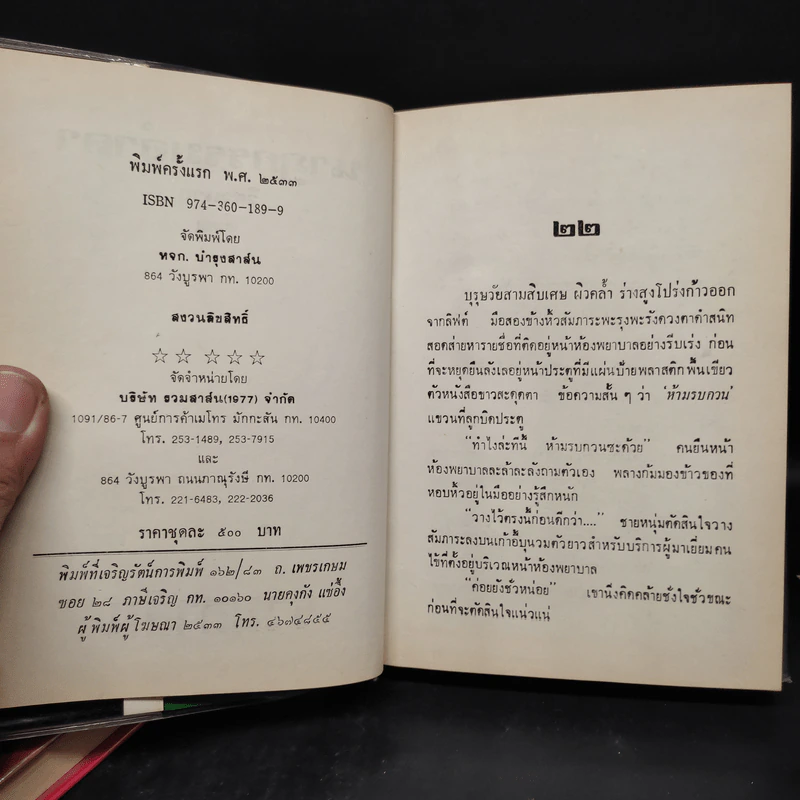 พิมพ์ครั้งแรก พ.ศ. ๒๕๓๓
ISBN 974-360-189-9
จัดพิมพ์โดย
หจก. บำรุงสาส์น
864 วังบูรพา กท. 10200
สงวนลิขสิทธิ์
☆☆ ☆☆☆
จัดจำหน่ายโดย
บริษัท รวมสาส์น(1977) จำกัด
1091/86-7 ศูนย์การค้าเมโทร มักกะสัน กท. 10400
โทร. 253-1489, 253-7915
และ
864 วังบูรพา ถนนภาณุรังษี กท. 10200
โทร. 221-6483, 222-2036
ราคาชุดละ ๕๐๐ บาท
พิมพ์ที่เจริญรัตน์การพิมพ์ ๑๖๒/๘๓ ถ. เพชรเกษม
ซอย ๒๘ ภาษีเจริญ กท. ๑๐๑๖๐ นายคุงกัง แซ่อึ้ง
ผู้พิมพ์ผู้โฆษณา ๒๕๓๓ โทร. ๔๖๗๔๘๕๕
๒๒
บุรุษวัยสามสิบเศษ ผิวคล้ำ ร่างสูงโปร่งก้าวออก
จากลิฟต์ มือสองข้างหิ้วสัมภาระพะรุงพะรังดวงตาดำสนิท
สอดส่ายหารายชื่อที่ติดอยู่หน้าห้องพยาบาลอย่างรีบเร่ง ก่อน
ที่จะหยุดยืนลังเลอยู่หน้าประตูที่มีแผ่นป้ายพลาสติกพื้นเขียว
ตัวหนังสือขาวสะดุดตา ข้อความสั้น ๆ ว่า 'ห้ามรบกวน'
แขวนที่ลูกบิดประตู
"ทำไงล่ะทีนี้ ห้ามรบกวนซะด้วย" คนยืนหน้า
ห้องพยาบาลละล้าละลังถามตัวเอง พลางก้มมองข้าวของที่
หอบหิ้วอยู่ในมืออย่างรู้สึกหนัก
"วางไว้ตรงนี้ก่อนดีกว่า...." ชายหนุ่มตัดสินใจวาง
สัมภาระลงบนเก้าอี้บุนวมตัวยาวสำหรับบริการผู้มาเยี่ยมคน
ไข้ที่ตั้งอยู่บริเวณหน้าห้องพยาบาล
"ค่อยยังชั่วหน่อย" เขานึงคิดคล้ายชั่งใจชั่วขณะ
ก่อนที่จะตัดสินใจแน่วแน่